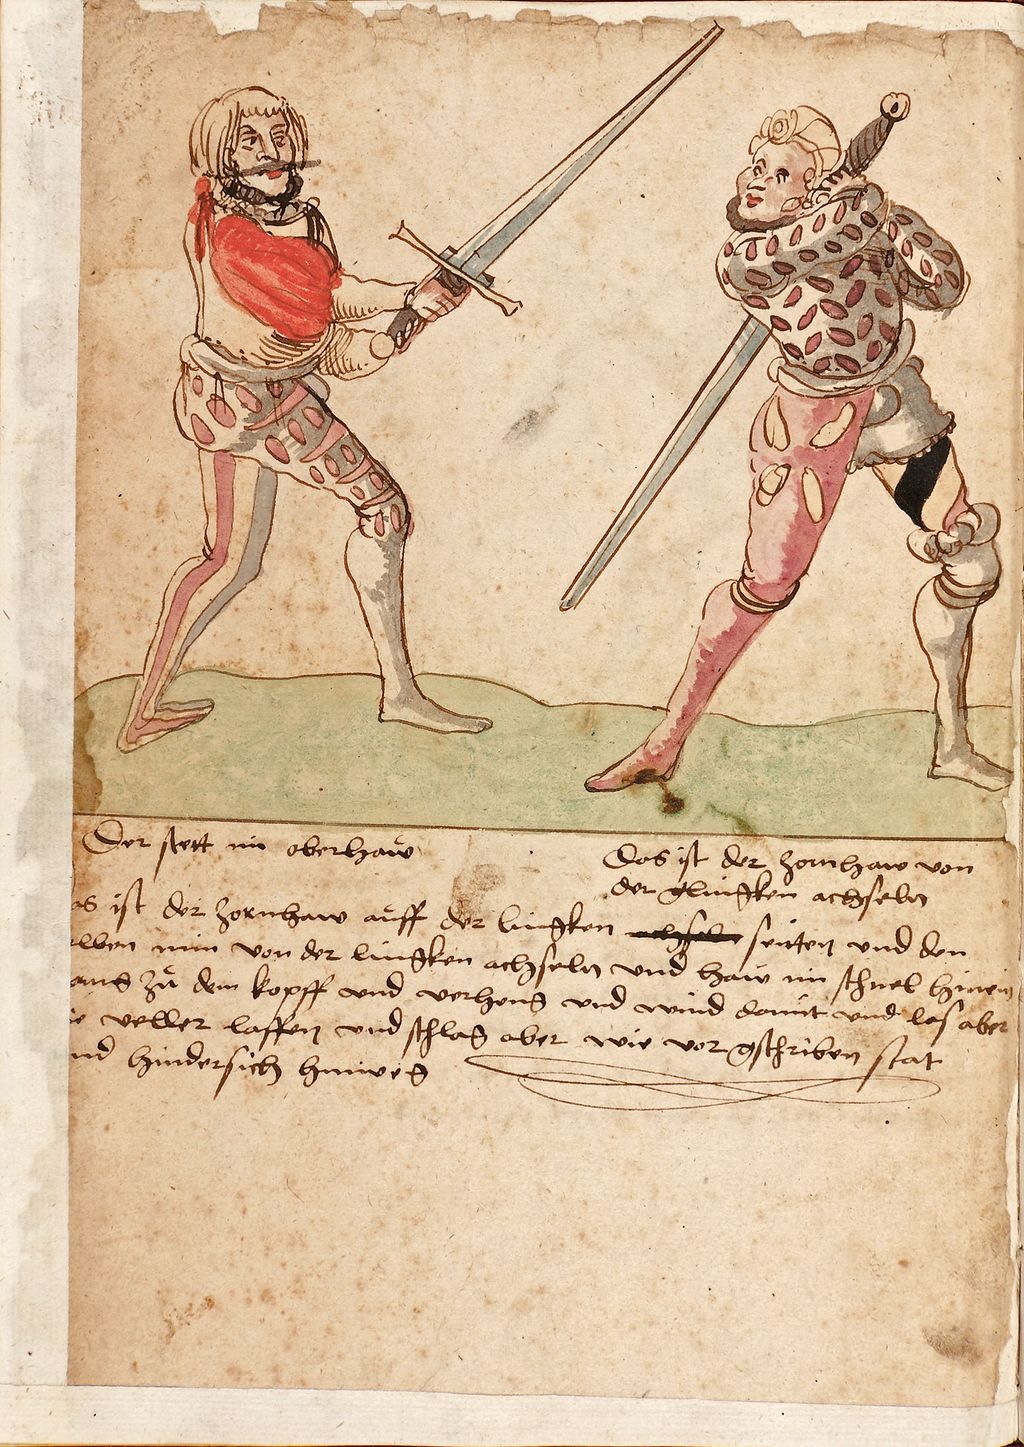 Der stett im oberhaw
Das ist der zornhaw von
der glingken achseln
as ist der zornhaw auff der lingken achseln seitten und den
elben nim von der lingken achseln und haw im schnel hinein
lang zů dem kopff und verheng und wind damit und las aber
ie veller lauffen und schlag aber wie vor gschriben stat
nd hindersich hinweg